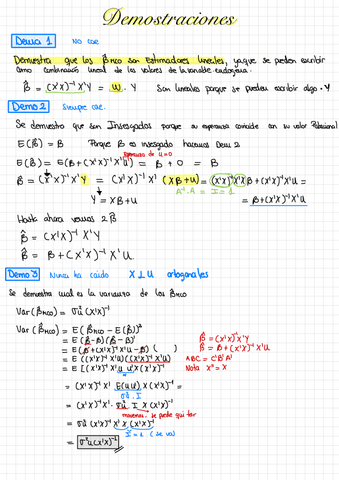 Demostraciones
Demo 1 No cae
Demuestra que los β̂MCO son Estimadores lineales, ya que se pueden escribir
como combinación lineal de los valores de la variable endógena.
β̂ = (X'X)⁻¹ X'Y = W · Y Son lineales porque se pueden escribir algo · Y
Demo 2 Siempre cae.
Se demuestra que son Insesgados porque su esperanza coincide con su valor Poblacional
E(β̂) = B Porque B es insesgado hacemos Demo 2
Esperanza de U=0
E(β̂) = E(B + (X'X)⁻¹X'U) = B + 0 = B
β̂ = (X'X)⁻¹X'Y = (X'X)⁻¹X' (XB+U) = (X'X)⁻¹X'XB + (X'X)⁻¹X'U =
A⁻¹·A = I = 1
Y = XB + U = B + (X'X)⁻¹X'U
Hasta ahora vemos 2 β̂
β̂ = (X'X)⁻¹ X'Y
β̂ = B + (X'X)⁻¹ X'U
Demo 3 Nunca ha caido X ⊥ U ortogonales
Se demuestra cual es la varianza de los β̂MCO
Var(β̂MCO) = σ²u (X'X)⁻¹
Var(β̂MCO) = E(β̂MCO - E(β̂))²
= E(β̂-B)(β̂-B)'
= E(B+(X'X)⁻¹X'U-B) ( )'
= E((X'X)⁻¹X'U)((X'X)⁻¹X'U)'
= E[(X'X)⁻¹X'U U'X(X'X)⁻¹]
β̂ = (X'X)⁻¹X'Y
β̂ = B + (X'X)⁻¹X'U
ABC = C'B'A'
Nota X'' = X
= (X'X)⁻¹X' E(UU') X(X'X)⁻¹ =
σ²u · I
= (X'X)⁻¹X' · σ²u I X (X'X)⁻¹
movemos. se puede quitar
= σ²u (X'X)⁻¹X'X(X'X)⁻¹
I = 1 (se va)
= σ²u(X'X)⁻¹